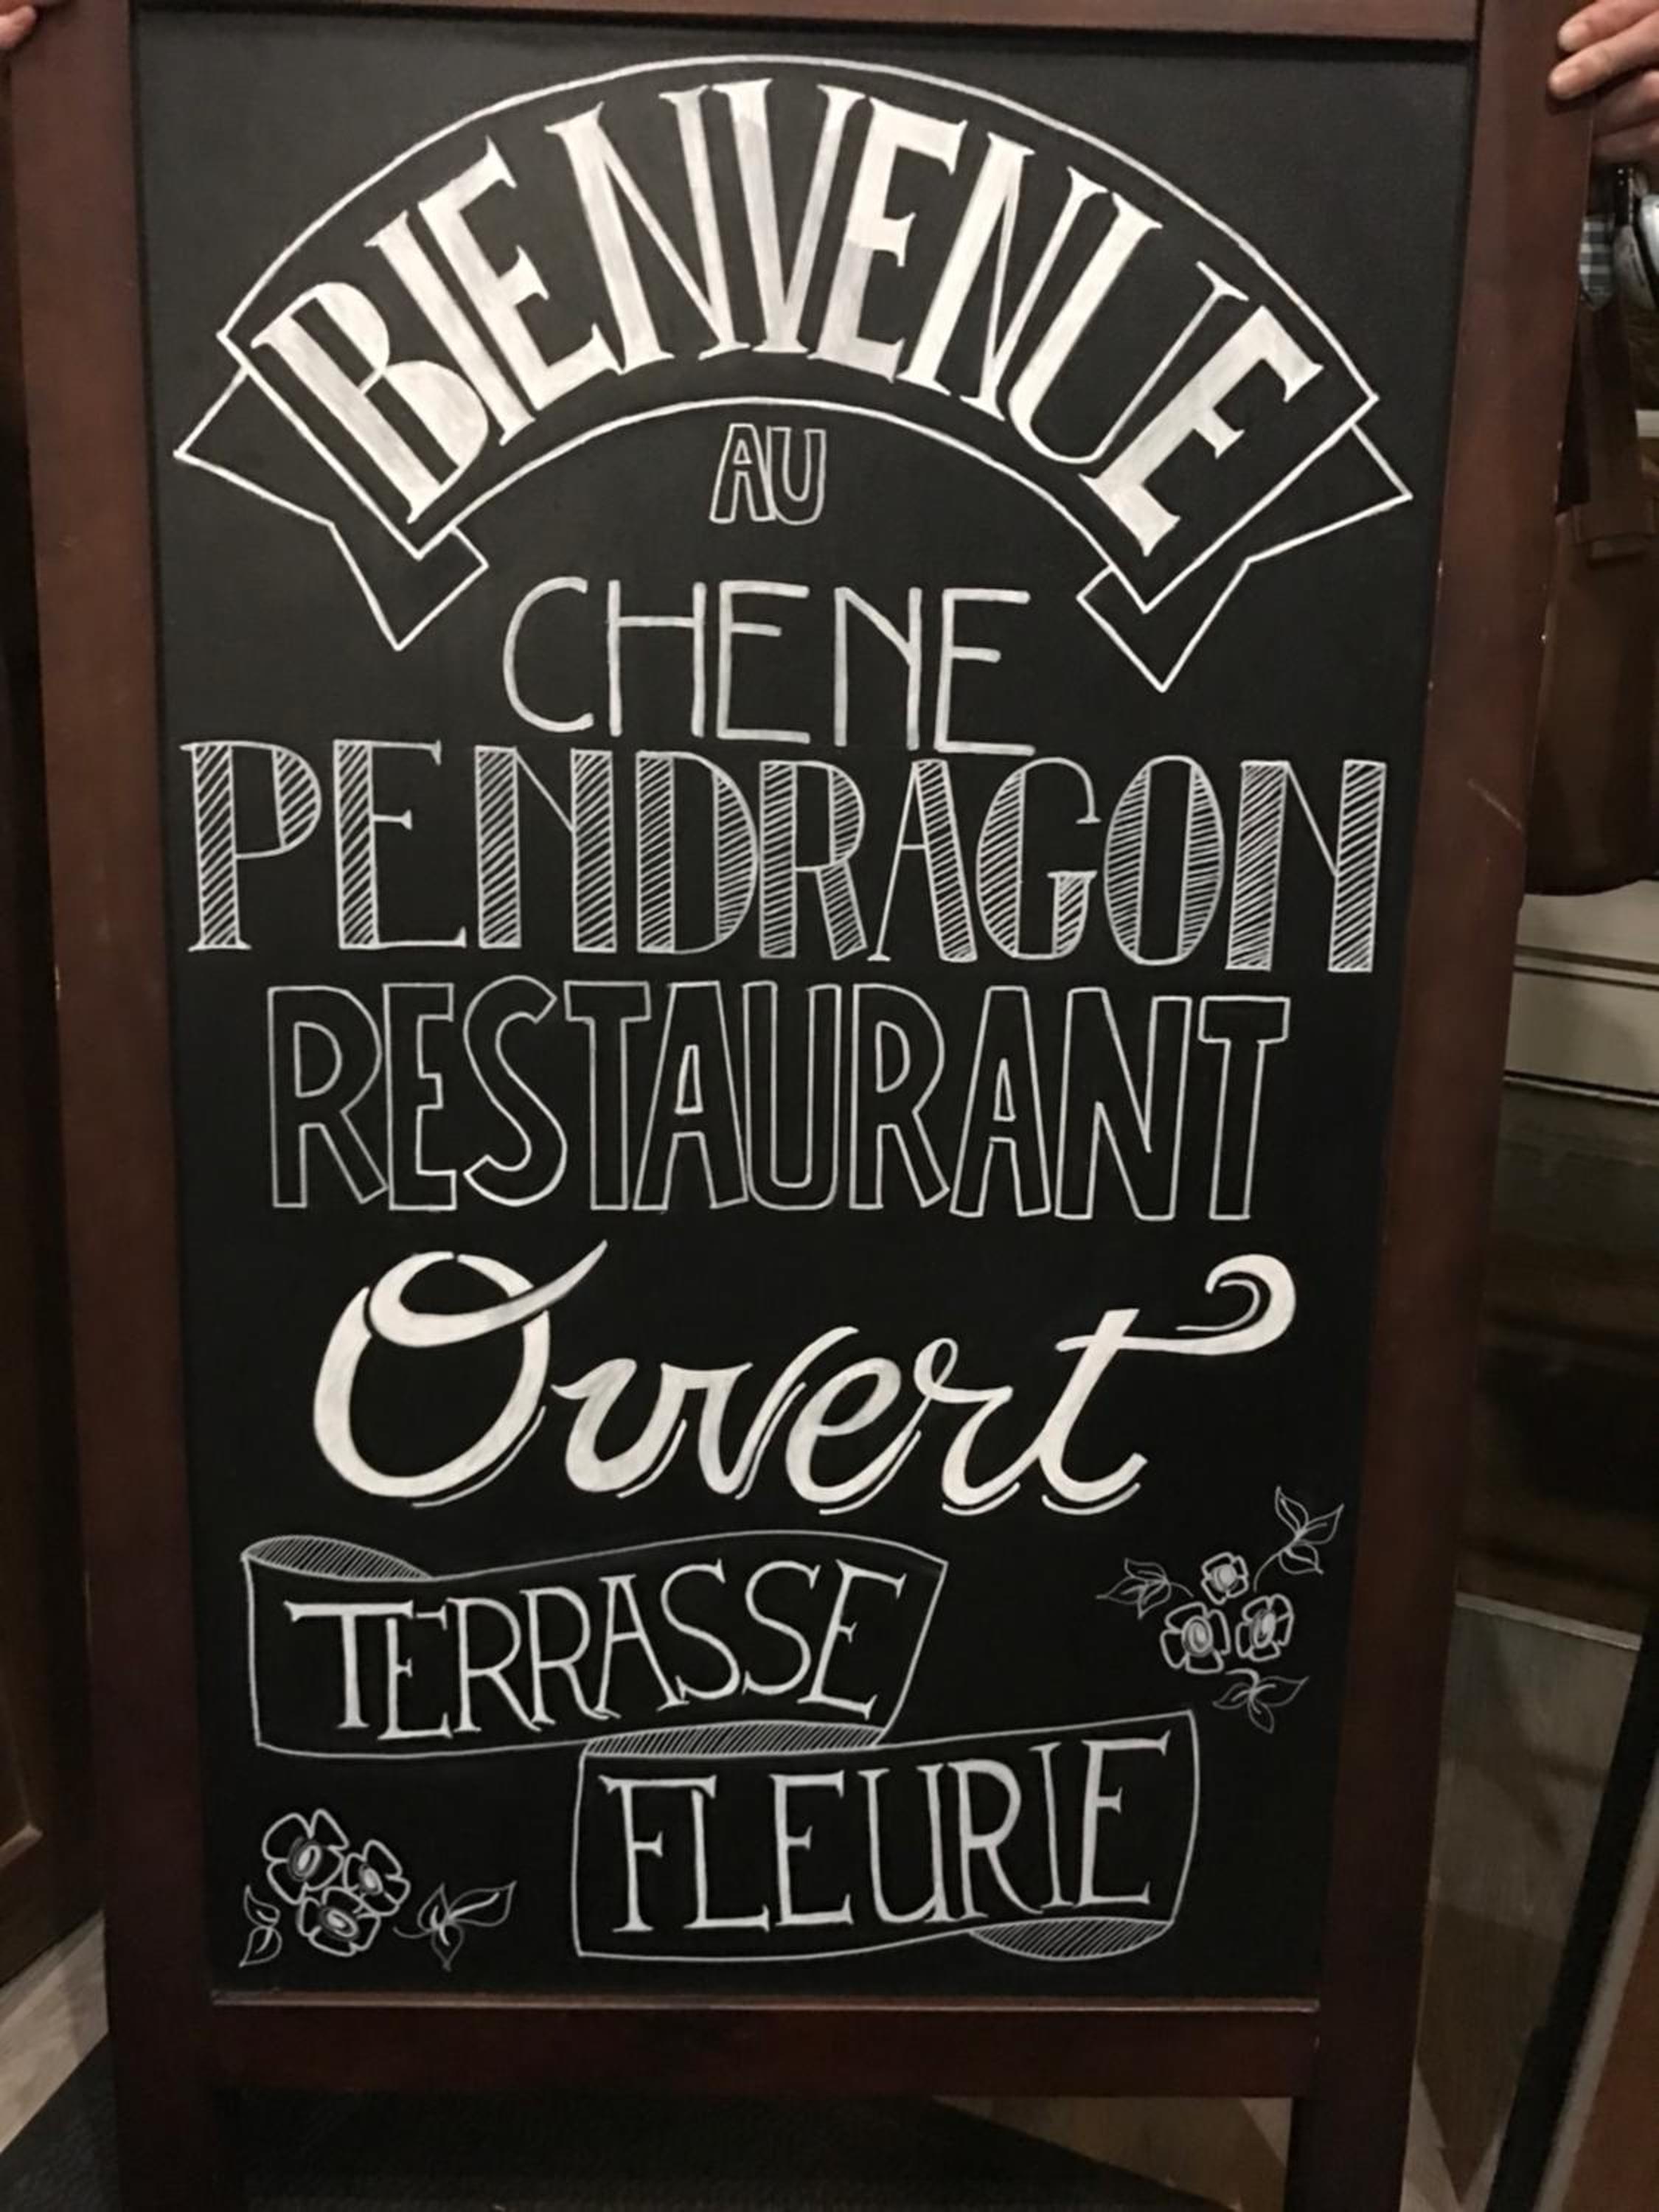 BIENVENUE
AU
CHENE
PENDRAGON
RESTAURANT
Ouvert
TERRASSE
FLEURIE